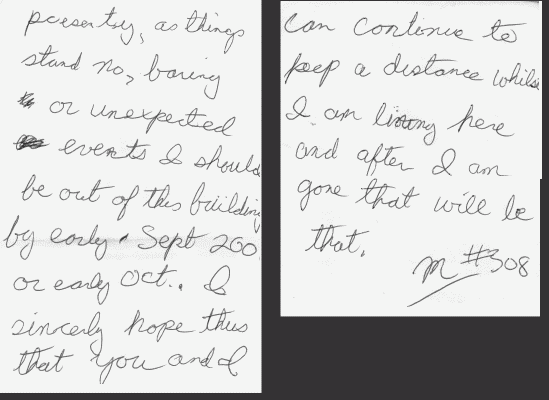 presentsy, as things
stand no, baring
or unexpected
events I should
be out of this building
by early Sept 200
or early Oct.. I
sincerly hope thus
that you and I
can continue to
keep a distance whilse
I am living here
and after I am
gone that will be
that.
M #308